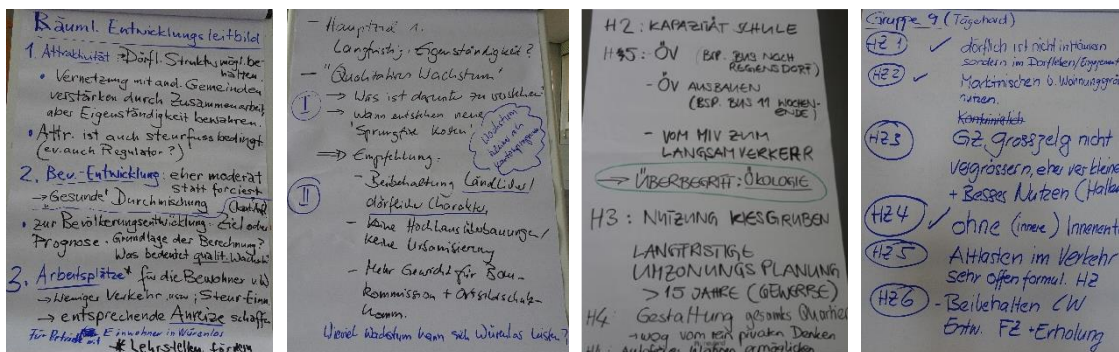 Räuml. Entwicklungsleitbild
1. Attraktivität → Dörfl. Struktur mögl. be-
halten.
• Vernetzung mit and. Gemeinden
verstärken durch Zusammenarbeit,
aber Eigenständigkeit bewahren.
• Attr. ist auch steuerfuss bedingt
(ev. auch Regulator?)
2. Bev.-Entwicklung: eher moderat
statt forciert
→ Gesunde Durchmischung
• zur Bevölkerungsentwicklung - Ziel oder
Prognose. Grundlage der Berechnung?
Was bedeutet qualit. Wachst.
3. Arbeitsplätze* für die Bewohner v. W
→ Weniger Verkehr, usw; Steuer-Einn.
→ entsprechende Anreize schaffen
Einwohner in Würenlos
* Lehrstellen fördern
- Hauptziel 1.
Langfristig: Eigenständigkeit?
- "Qualitatives Wachstum"
I → Was ist darunter zu verstehen
→ wann entstehen neue
"Sprungfixe Kosten"
Wachstum
⇒ Empfehlung:
II - Beibehaltung Ländlicher/
dörflicher Charakter
- Keine Hochhausüberbauungen/
keine Urbanisierung
- Mehr Gewicht für Bau-
kommission + Ortsbildschutz-
komm.
Wieviel Wachstum kann sich Würenlos leisten?
H2: KAPAZITÄT SCHULE
H5: ÖV (BSP. BUS NACH
REGENSDORF)
- ÖV AUSBAUEN
(BSP. BUS 11 WOCHEN-
ENDE)
- VOM MIV ZUM
LANGSAMVERKEHR
→ ÜBERBEGRIFF: ÖKOLOGIE
H3: NUTZUNG KIESGRUBEN
LANGFRISTIGE
UMZONUNGSPLANUNG
> 15 JAHRE (GEWERBE)
H4: Gestaltung gesamtes Quartier
→ weg vom rein privaten Denken
Wohnen ermöglichen
Gruppe 9 (Tägerhard)
HZ 1 ✓ dörflich ist nicht in Häusern
sondern im Dorfleben/Engagement
HZ 2 ✓
nutzen.
HZ 3 GZ Grosszelg nicht
vergrössern, eher verkleine
+ Besses Nutzen (Halle
HZ 4 ✓ ohne (innere) Innenent
HZ 5 Altlasten im Verkehr
sehr offen formul. HZ
HZ 6 - Beibehalten LW
Entw. FZ + Erholung